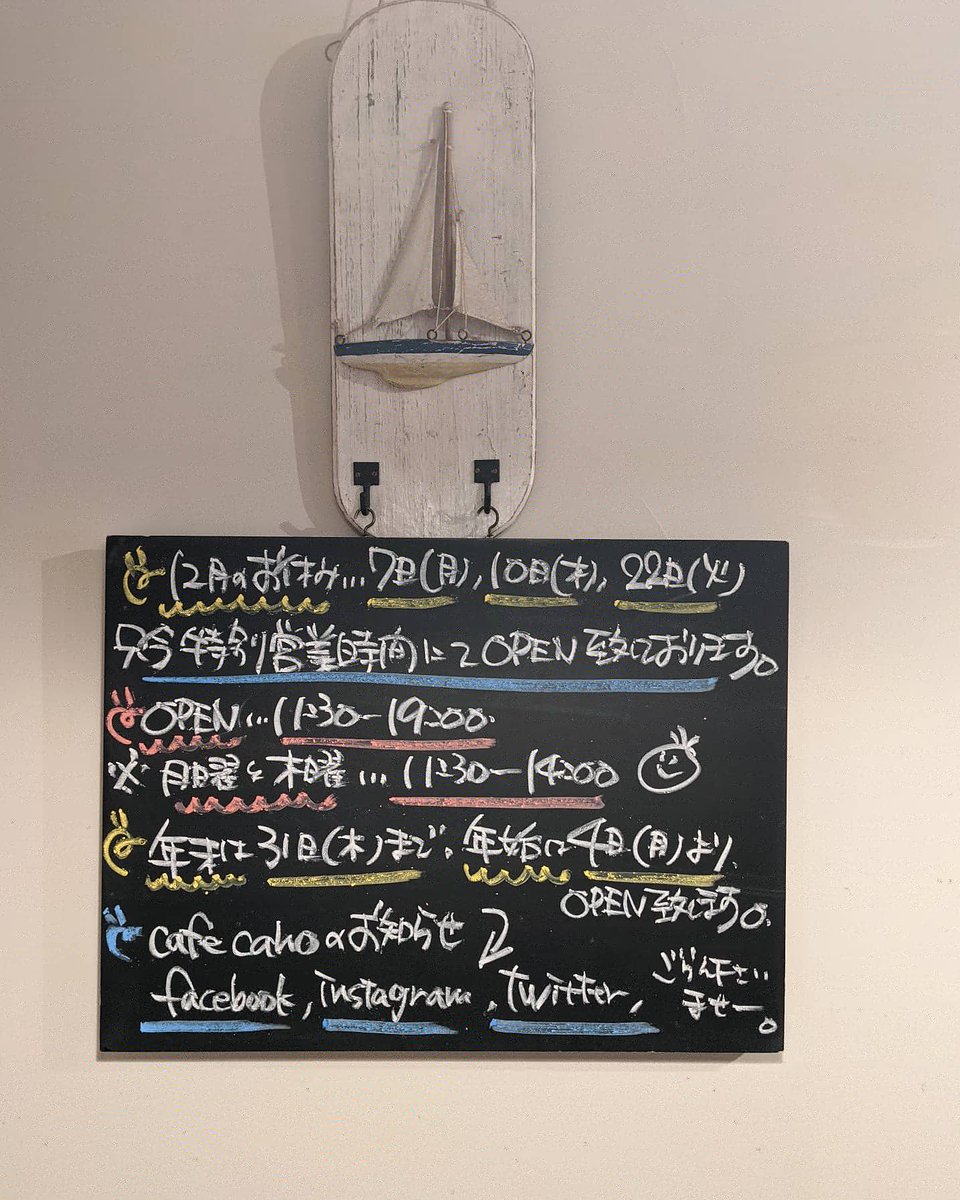 12月のお休み…7日(月),10日(木),22日(火)
只今特別営業時間にてOPEN致しております。
OPEN…11:30-19:00.
※月曜と木曜…11:30-14:00
年末は31日(木)まで、年始は4日(月)より
OPEN致します。
cafe cahoのお知らせ
facebook, instagram, twitter,
ごらん下さい
ませー。